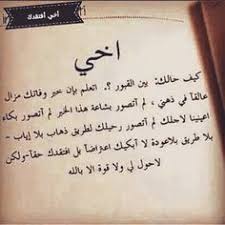 أخي أفتقدك
اخي
كيف حالك: بين القبور ؟. اتعلم بإن خبر وفاتك مزال
عالقآ في ذهني ، لم آتصور بشاعة هذا الخبر لم آتصور بكاء
اعيينا لاجلك لم آتصور رحيلك لطريق ذهاب بلا إياب -
بلا طريق بلاعودة لا أبكيك اعتراضآ بل افتقدك حقآ-ولكن
لاحول لي ولا قوة الا بالله